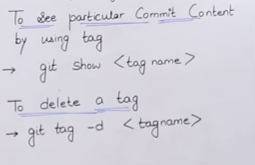 To see particular Commit Content
by using tag
→ git show <tag name>
To delete a tag
→ git tag -d <tagname>